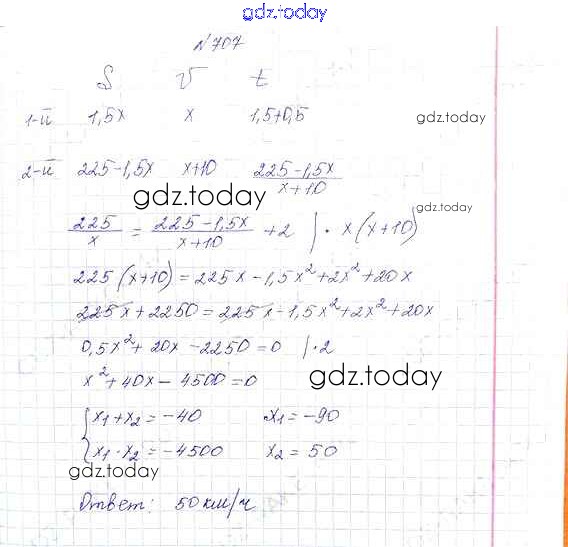 gdz.today
№707
S v t
1-й 1,5x x 1,5+0,5
gdz.today
2-й 225-1,5x x+10 (225-1,5x)/(x+10)
gdz.today
225/x = (225-1,5x)/(x+10) +2 | · x(x+10)
225(x+10) = 225x - 1,5x² + 2x² + 20x
225x + 2250 = 225x - 1,5x² + 2x² + 20x
0,5x² + 20x - 2250 = 0 | ·2
x² + 40x - 4500 = 0
gdz.today
x₁ + x₂ = -40 x₁ = -90
x₁ · x₂ = -4500 x₂ = 50
gdz.today
Ответ: 50 км/ч